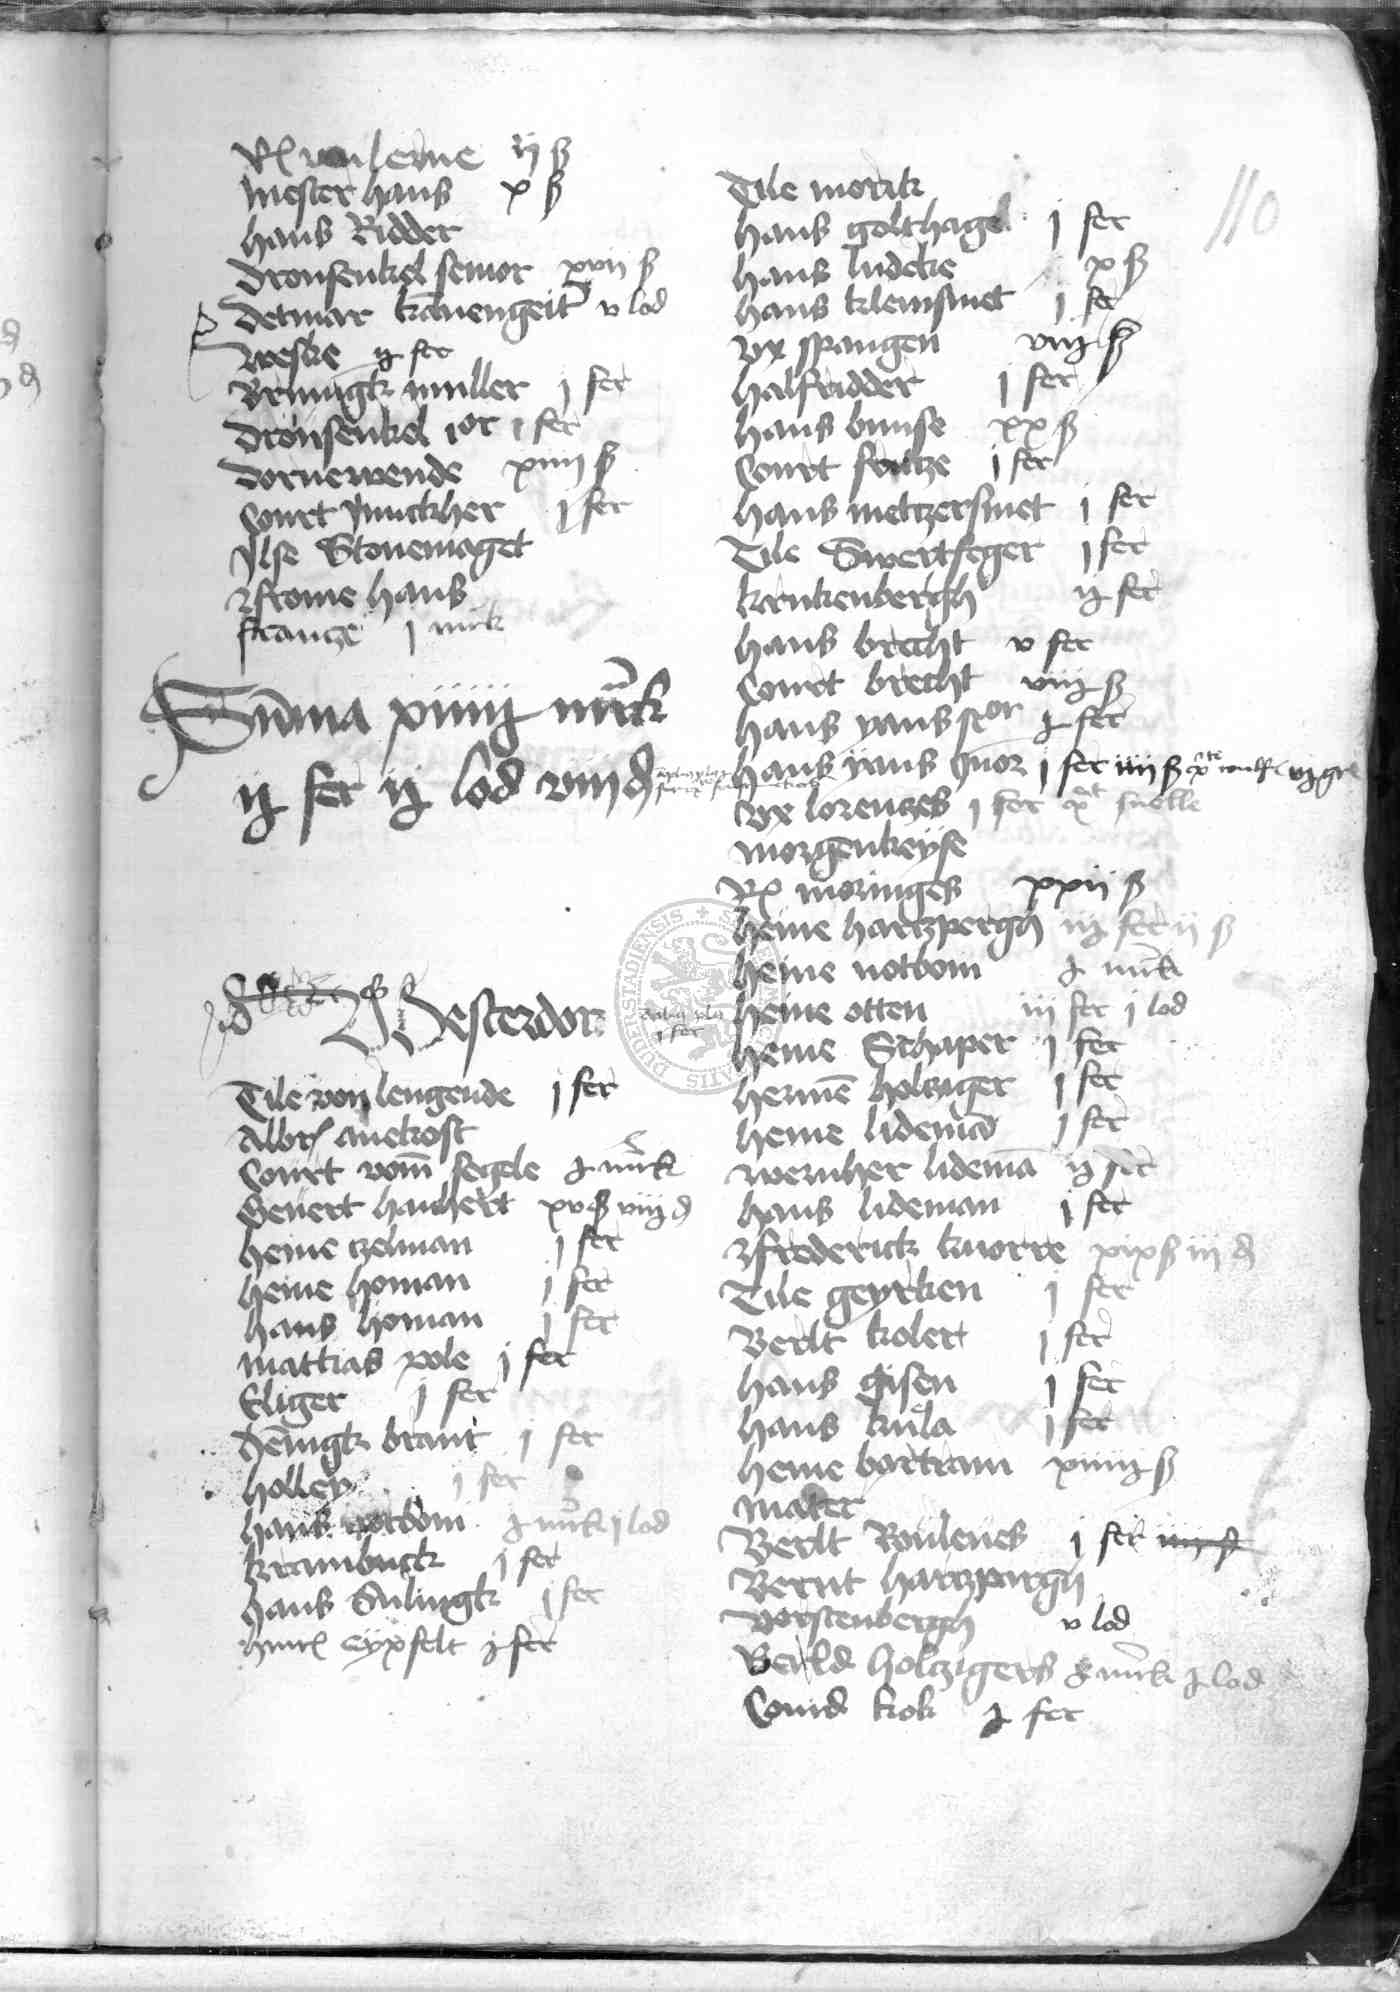 Rel vanlerne iij ß
Mester hans x ß
Hans Ridder
Dronsenkel senior xvii ß
Detmar kavengeit v lod
Weske ij fer
Brunigk muller j fer
Dronsenkel ior j fer
Dornewende xiiii ß
Cort Junckher j fer
Ylse Stonemaget
frome hans
frantze j mrk
Summa xiiiij mrck
ij fer ij lod viij d
110
Westerdor
Tile von lengende j fer
Albr avekost
Court vom segele mrk
Gevert hanhert xv ß viiij d
Heine tzelman j fer
Heine homan j fer
Hans homan j fer
Mattias pole j fer
Eliger j fer
Henigk brant j fer
Holley j fer
Hans notbom mrk j lod
krambuck j fer
Hans Sulingk j fer
Hinr eyxfelt fer
Tile morik
Hans golthagel j fer
Hans ludeke x ß
Hans klensmet j fer
Vx spangen viij ß
Halfridder j fer
Hans bunse xx ß
Court fontze j fer
Hans metzersmet j fer
Tile Swertfeger j fer
krukenbergh ij fer
Hans brecht v fer
Court brecht viij ß
Hans yans seor fer
Hans yans Junor j fer iiii ß
Vx lorentzes j fer
Morgenkeyse
Rel moringes xxii ß
Heine hartzpergh iij fer ii ß
Heine notbom mrk
Heine otten iij fer j lod
Heine Schaper j fer
Hermen holtziger j fer
Heine lideman j fer
Wernher lidema ij fer
Hans lideman j fer
frederick knorre xix ß iij d
Tile geyrken j fer
Berlt koler j fer
Hans gisen j fer
Hans kula j fer
Heine bartram xiiiij ß
Mater
Berlt Rouleves j fer
Bernt hartzpargh
Vorstenbergh v lod
Berld holtzigers mrk lod
Conrd kok fer